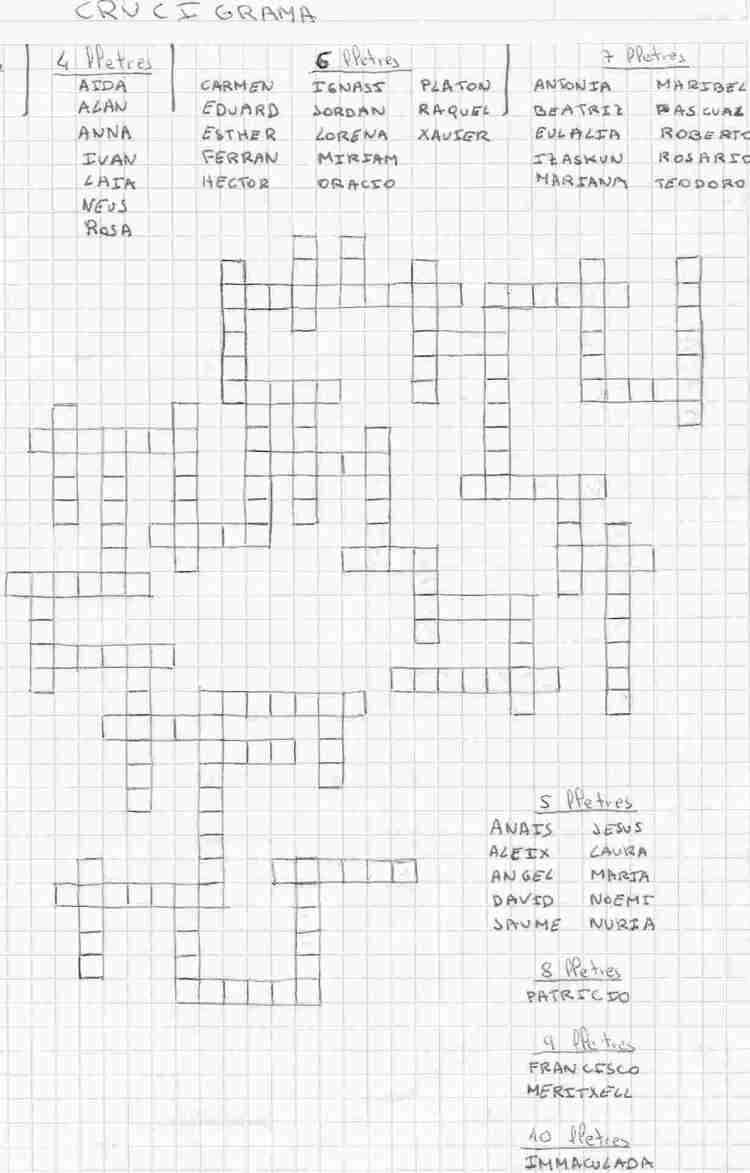 CRUCIGRAMA
4 lletres
AIDA
ALAN
ANNA
IVAN
LAIA
NEUS
ROSA
6 lletres
CARMEN
EDUARD
ESTHER
FERRAN
HECTOR
IGNASI
JORDAN
LORENA
MIRIAM
ORACIO
PLATON
RAQUEL
XAVIER
7 lletres
ANTONIA
BEATRIZ
EULALIA
IZASKUN
MARIANA
MARIBEL
PASCUAL
ROBERTO
ROSARIO
TEODORO
5 lletres
ANAIS
ALEIX
ANGEL
DAVID
JAUME
JESUS
LAURA
MARIA
NOEMI
NURIA
8 lletres
PATRICIO
9 lletres
FRANCISCO
MERITXELL
10 lletres
IMMACULADA